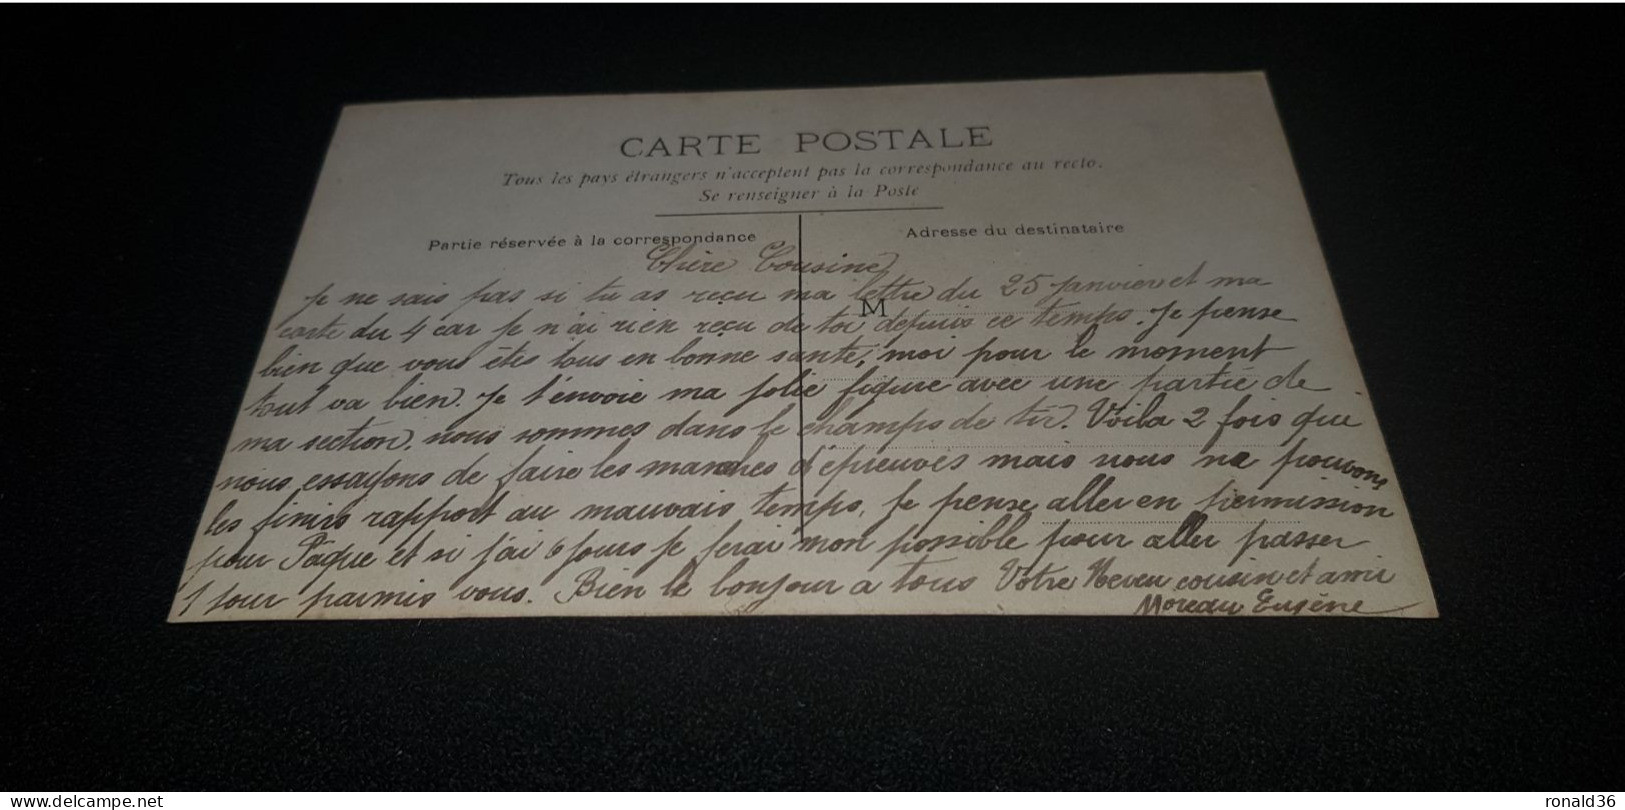 CARTE POSTALE
Tous les pays étrangers n'acceptent pas la correspondance au recto.
Se renseigner à la Poste
Partie réservée à la correspondance
Adresse du destinataire
M
Chère Cousine
Je ne sais pas si tu as reçu ma lettre du 25 Janvier et ma
carte du 4 car Je n'ai rien reçu de toi depuis ce temps. Je pense
bien que vous êtes tous en bonne santé, moi pour le moment
tout va bien. Je t'envoie ma jolie figure avec une partie de
ma section, nous sommes dans le champs de tir. Voila 2 fois que
nous essayons de faire les marches d'épreuves mais nous ne pouvons
les finirs rapport au mauvais temps, Je pense aller en permission
pour Pâque et si j'ai 6 jours Je ferai mon possible pour aller passer
1 jour parmis vous. Bien le bonjour a tous Votre Neveu cousin et ami
Moreau Eugène
delcampe.net
ronald36